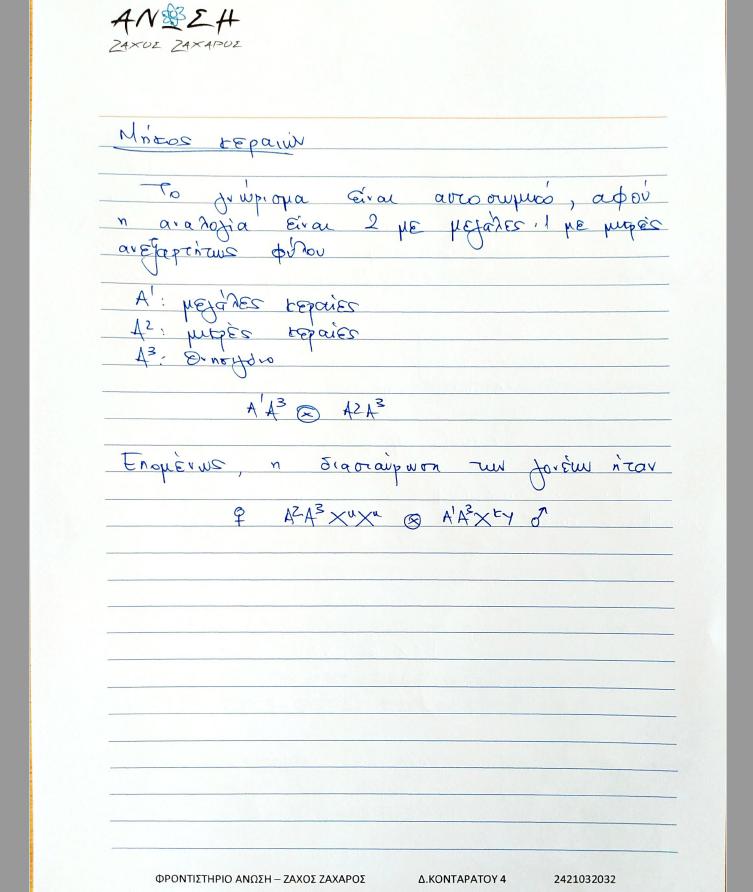 ΑΝΩΣΗ
ΖΑΧΟΣ ΖΑΧΑΡΟΣ
Μήκος κεραιών
Το γνώρισμα είναι αυτοσωμικό, αφού
η αναλογία είναι 2 με μεγάλες : 1 με μικρές
ανεξαρτήτως φύλου
Α¹: μεγάλες κεραίες
Α²: μικρές κεραίες
Α³: θνησιγόνο
Α¹Α³ ⊗ Α2Α³
Επομένως, η διασταύρωση των γονέων ήταν
♀ Α²Α³ΧᵘΧᵘ ⊗ Α¹Α³ΧᵏΥ ♂
ΦΡΟΝΤΙΣΤΗΡΙΟ ΑΝΩΣΗ – ΖΑΧΟΣ ΖΑΧΑΡΟΣ Δ.ΚΟΝΤΑΡΑΤΟΥ 4 2421032032